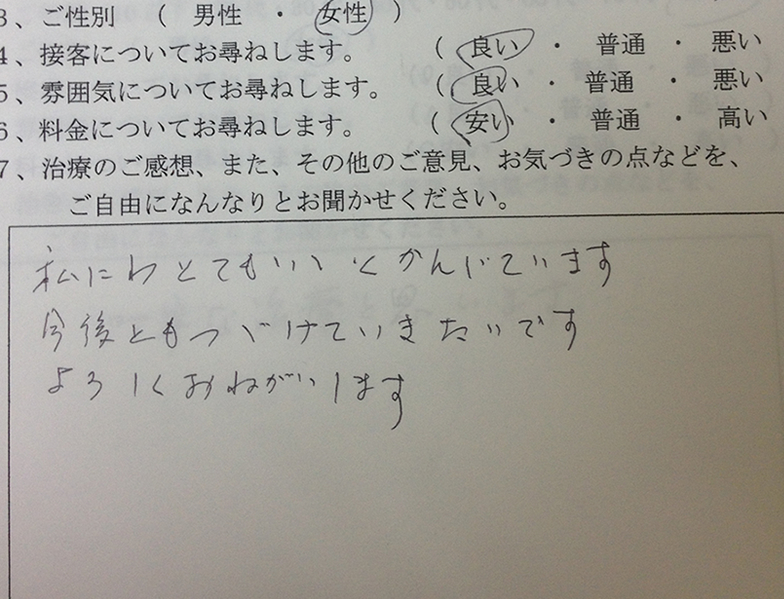 3、ご性別 （ 男性 ・ 女性 ）
4、接客についてお尋ねします。 （ 良い ・ 普通 ・ 悪い
5、雰囲気についてお尋ねします。 （ 良い ・ 普通 ・ 悪い
6、料金についてお尋ねします。 （ 安い ・ 普通 ・ 高い
7、治療のご感想、また、その他のご意見、お気づきの点などを、
ご自由になんなりとお聞かせください。
私にわとてもいいとかんじています
今後ともつづけていきたいです
よろしくおねがいします